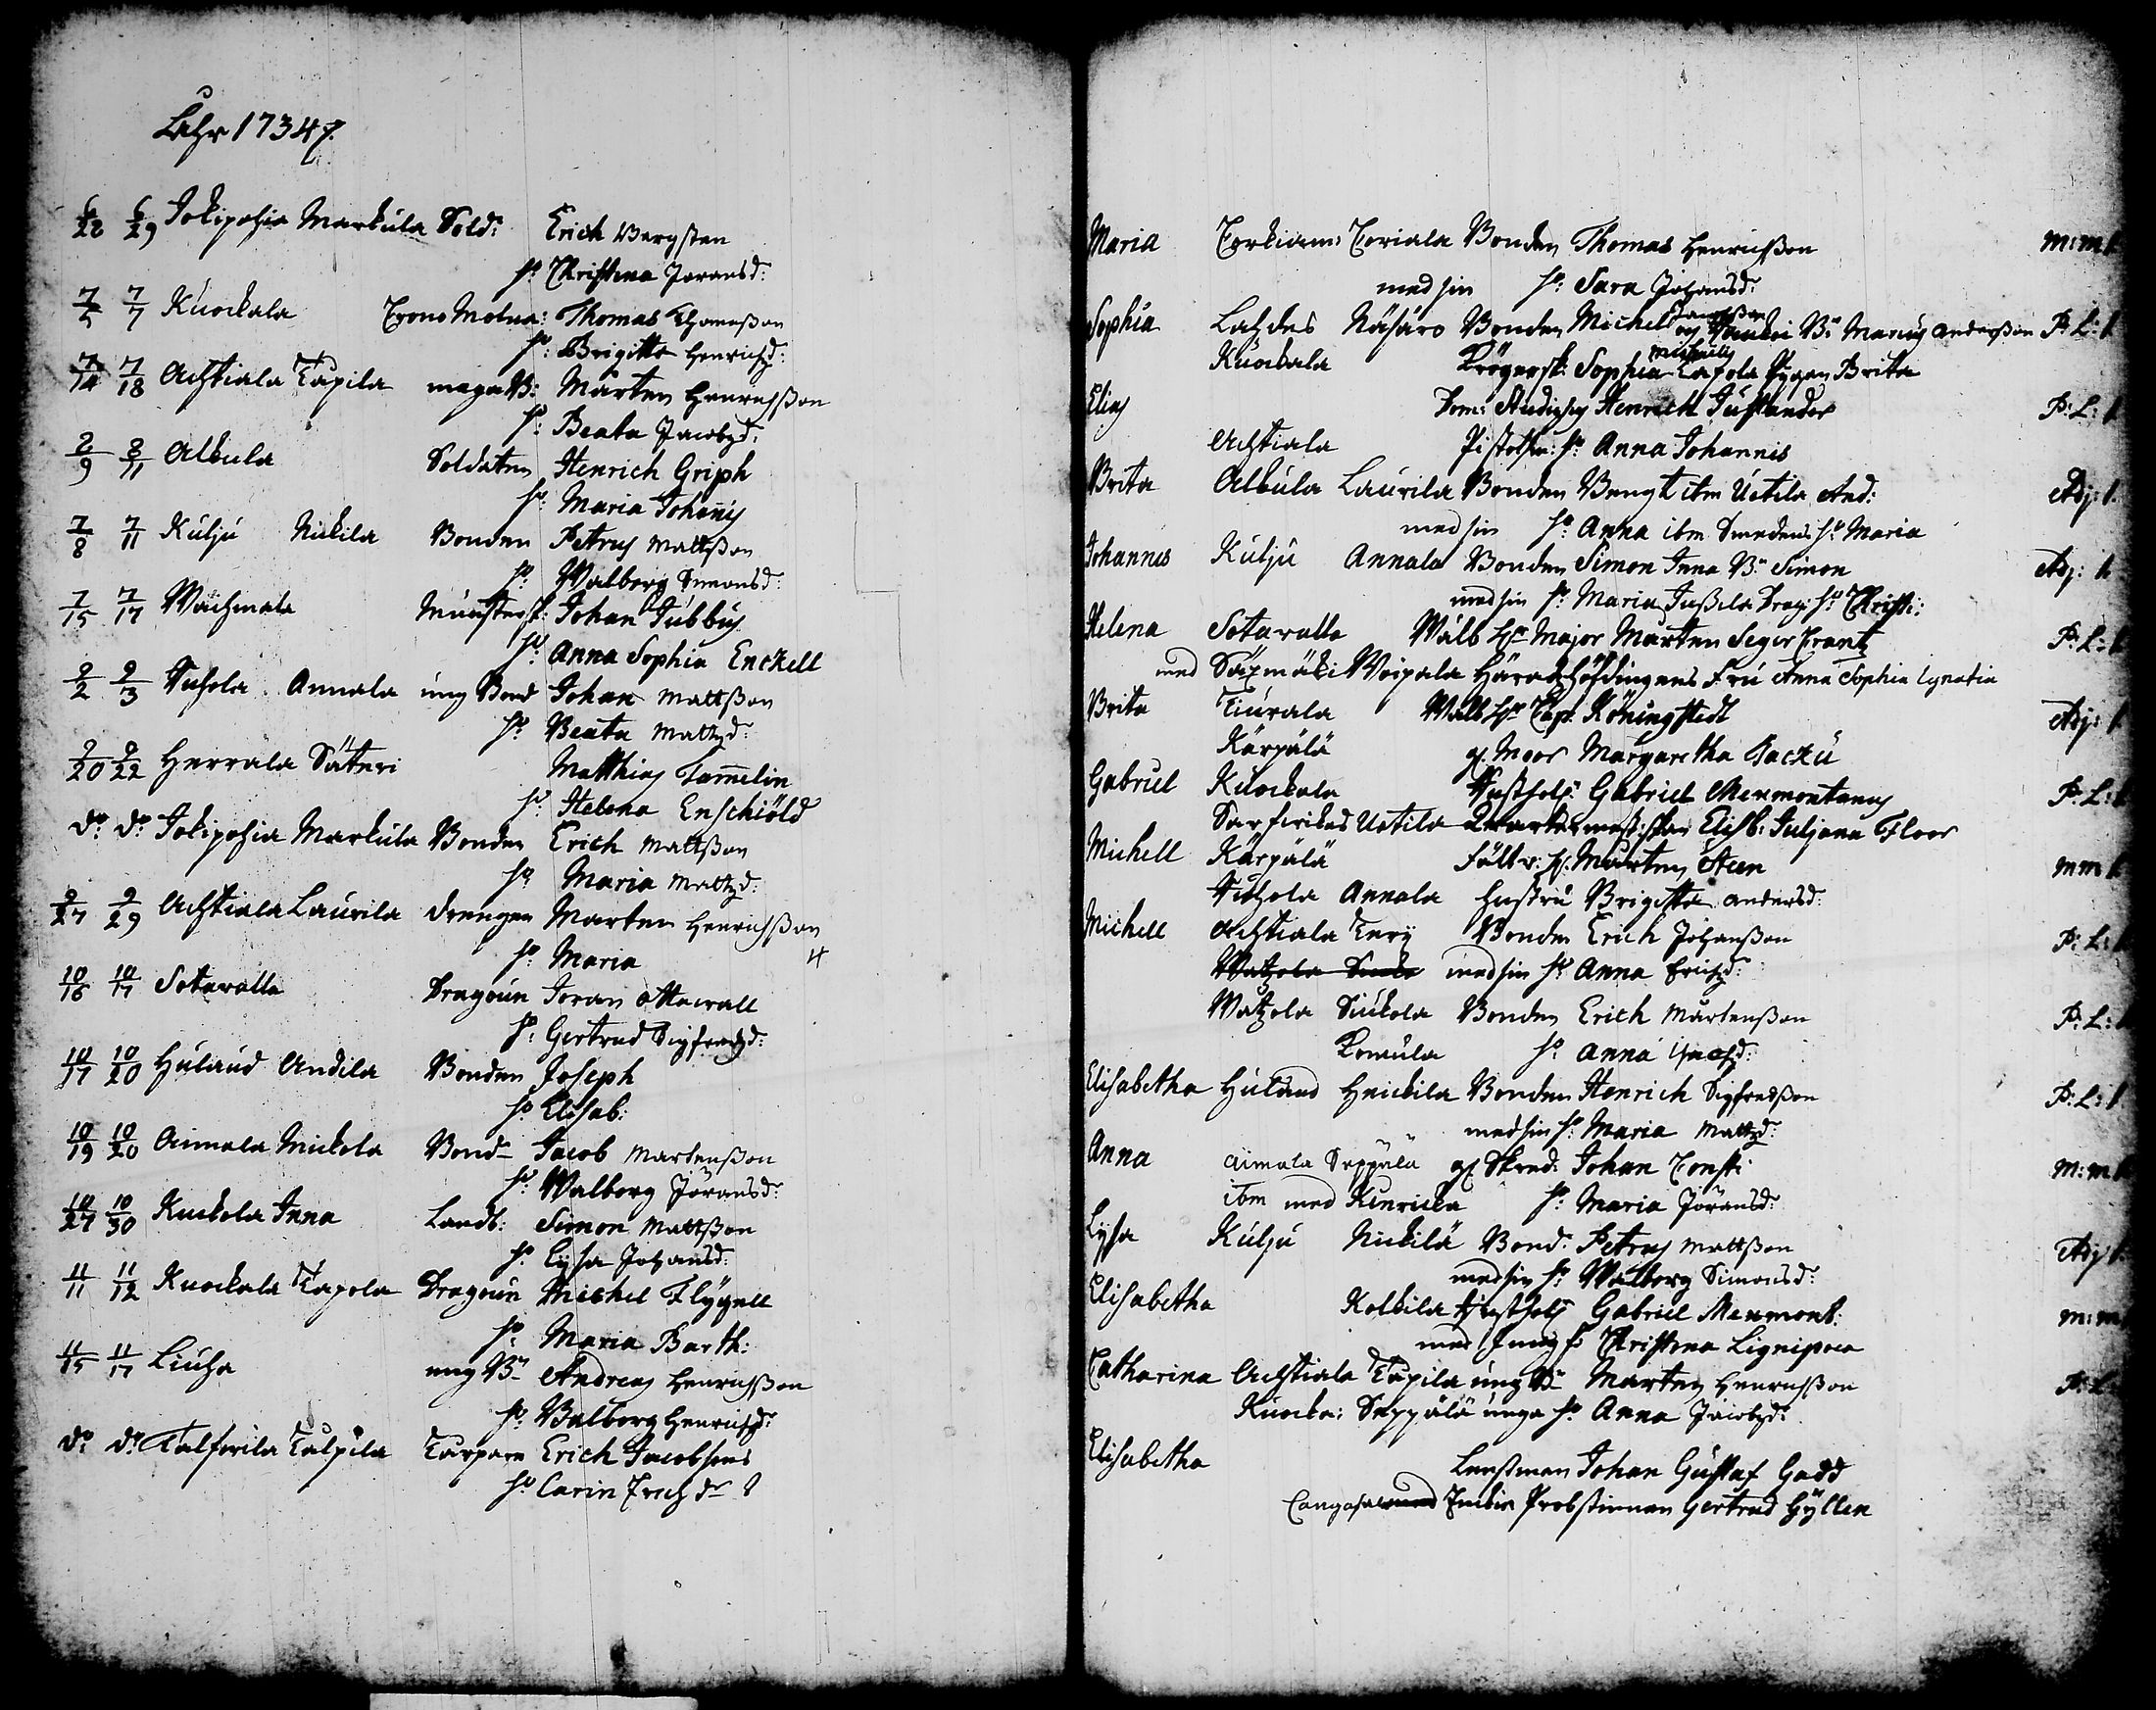 Åhr 1734
6/22 6/29 Jokipohja Markula Sold: Erich Bergsten
h: Christina Joransd:
7/5 7/7 Kuockala Crono Molna: Thomas Thomaßon
h: Brigitta Henrichsd:
7/14 7/18 Achtiala Tapila unga B: Mårten Henrichßon
h: Beata Jacobsd:
8/9 8/11 Alkula Soldaten Henrich Griph
h: Maria Johañis
7/8 7/11 Kulju Nickila Bonden Petrus Mattßon
h: Walborg Simonsd:
7/15 7/17 Wachmala Munsterskr: Johan Jubbus
h: Anna Sophia Enckell
9/2 9/3 Annala ung Bond Johan Mattßon
h: Beata Mattzd:
9/20 9/22 Herrala Säteri Matthias Tam̃elin
h: Helena Enschiöld
do do Jokipohja Markula Bonden Erich Mattßon
h: Maria Mattzd:
9/27 9/29 Achtiala Laurila drengen Marten Henrichßon
h: Maria
10/16 10/17 Sotavalla Dragoun Joran Ottawall
h: Gertrud Sigfredzd:
10/17 10/20 Hulaud Andila Bonden Joseph
h: Elisab:
10/19 10/20 Aimala Mickola Bond Jacob Martenßon
h: Walborg Jöransd:
10/27 10/30 Kuckola Inna Landb: Simon Mattßon
h: Lysa Johansd:
11/11 11/12 Kuockala Tapola Dragoun Michel Flygell
h: Maria Barth:
11/15 11/17 Liucha ung B: Andreas Henrichßon
h: Walborg Henrichsd:
do do Talpila Torpare Erich Jacobsons
h: Carin Erichsdr
Maria Bonden Thomas Henrichßon m:m
med sin h: Sara Johansd:
Sophia Lachdes Näsäro Bonden Michel B: Marcus Anderßon P: L:
Kuockala Sophia Tapola Pygan Brita
Elias Dom: Studiosus Henrich Justander P: L:
Achtiala h: Anna Johannis
Brita Alkula Laurila Bonden Bengt ibm Uotila And: Adj:
med sin h: Anna ibm Smedens h: Maria
Johannes Kulju Annala Bonden Simon Inna B: Simon Adj:
med sin h: Maria Jußila Drag: h: Christi:
Helena Sotavalla Wälb Hr Major Mårten Segercrantz P: L:
med Säxmäki Woipala Häradshöfdingens Fru Anna Sophia Ignatia
Brita Tiurala Wälb Hr Capt. Köningstedt Adj:
Kärpälä gl. Moor Margaretha Packu
Gabriel Kuockala Gabriel Mexmontanus P: L:
Uotila Elisb: Juljana Floor
Michell Kärpälä Fältw: H: Mårten Steen mm
Annala hustru Brigitta Andersd:
Michell Achtiala Tery Bonden Erich Johanßon P: L:
med sin h: Anna Erichsd:
Watzola Siukola Bonden Erich Mårtenßon P: L:
Romula h: Anna Isacsd:
Elisabetha Huland Heickila Bonden Henrich Sigfredßon P: L:
med sin h: Maria Mattzd:
Anna Aimala Seppälä gl Skred: Johan Consti m:m
ibm med Kinricka h: Maria Jöransd:
Lysa Kulju Nickilä Bond. Petrus Mattßon Adj
med sin h: Walborg Simonsd:
Elisabetha Kolkila Gabriel Mexmont: m:m
med Jungf: Christina Lignipoea
Catharina Achtiala Tapila ung B: Marten Henrichßon P: L:
Kuocka: Seppälä unga h: Anna Jacobzd:
Elisabetha Lensman Johan Gustaf Gadd
Cangasala Probstinnan Gertrud Gyllen